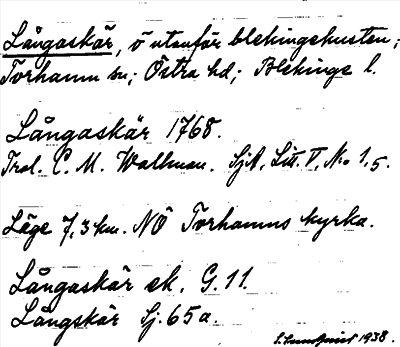 Långaskär, ö utanför blekingekusten;
Torhamn sn; Östra hd; Blekinge l.
Långaskär 1768.
Trol. C. M. Wallman. SjA, Litt. V, No 1,5.
Läge 7,3 km. NÖ Torhamns kyrka.
Långaskär ek. G. 11.
Långskär Sj. 65 a.
1938.